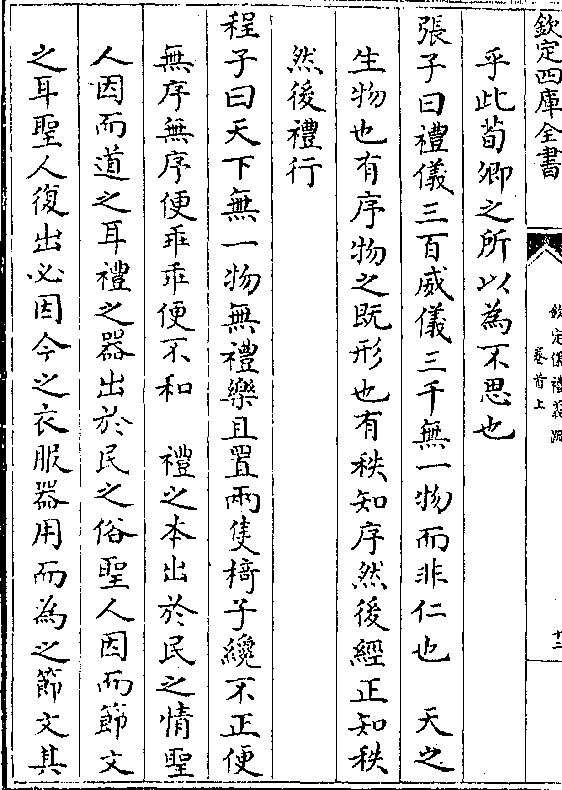 欽定四庫全書
欽定儀禮義疏
卷首上
十二
乎此荀卿之所以為不思也
張子曰禮儀三百威儀三千無一物而非仁也　天之
生物也有序物之既形也有秩知序然後經正知秩
然後禮行
程子曰天下無一物無禮樂且置兩隻椅子纔不正便
無序無序便乖乖便不和　禮之本出於民之情聖
人因而道之耳禮之器出於民之俗聖人因而節文
之耳聖人復出必因今之衣服器用而為之節文其